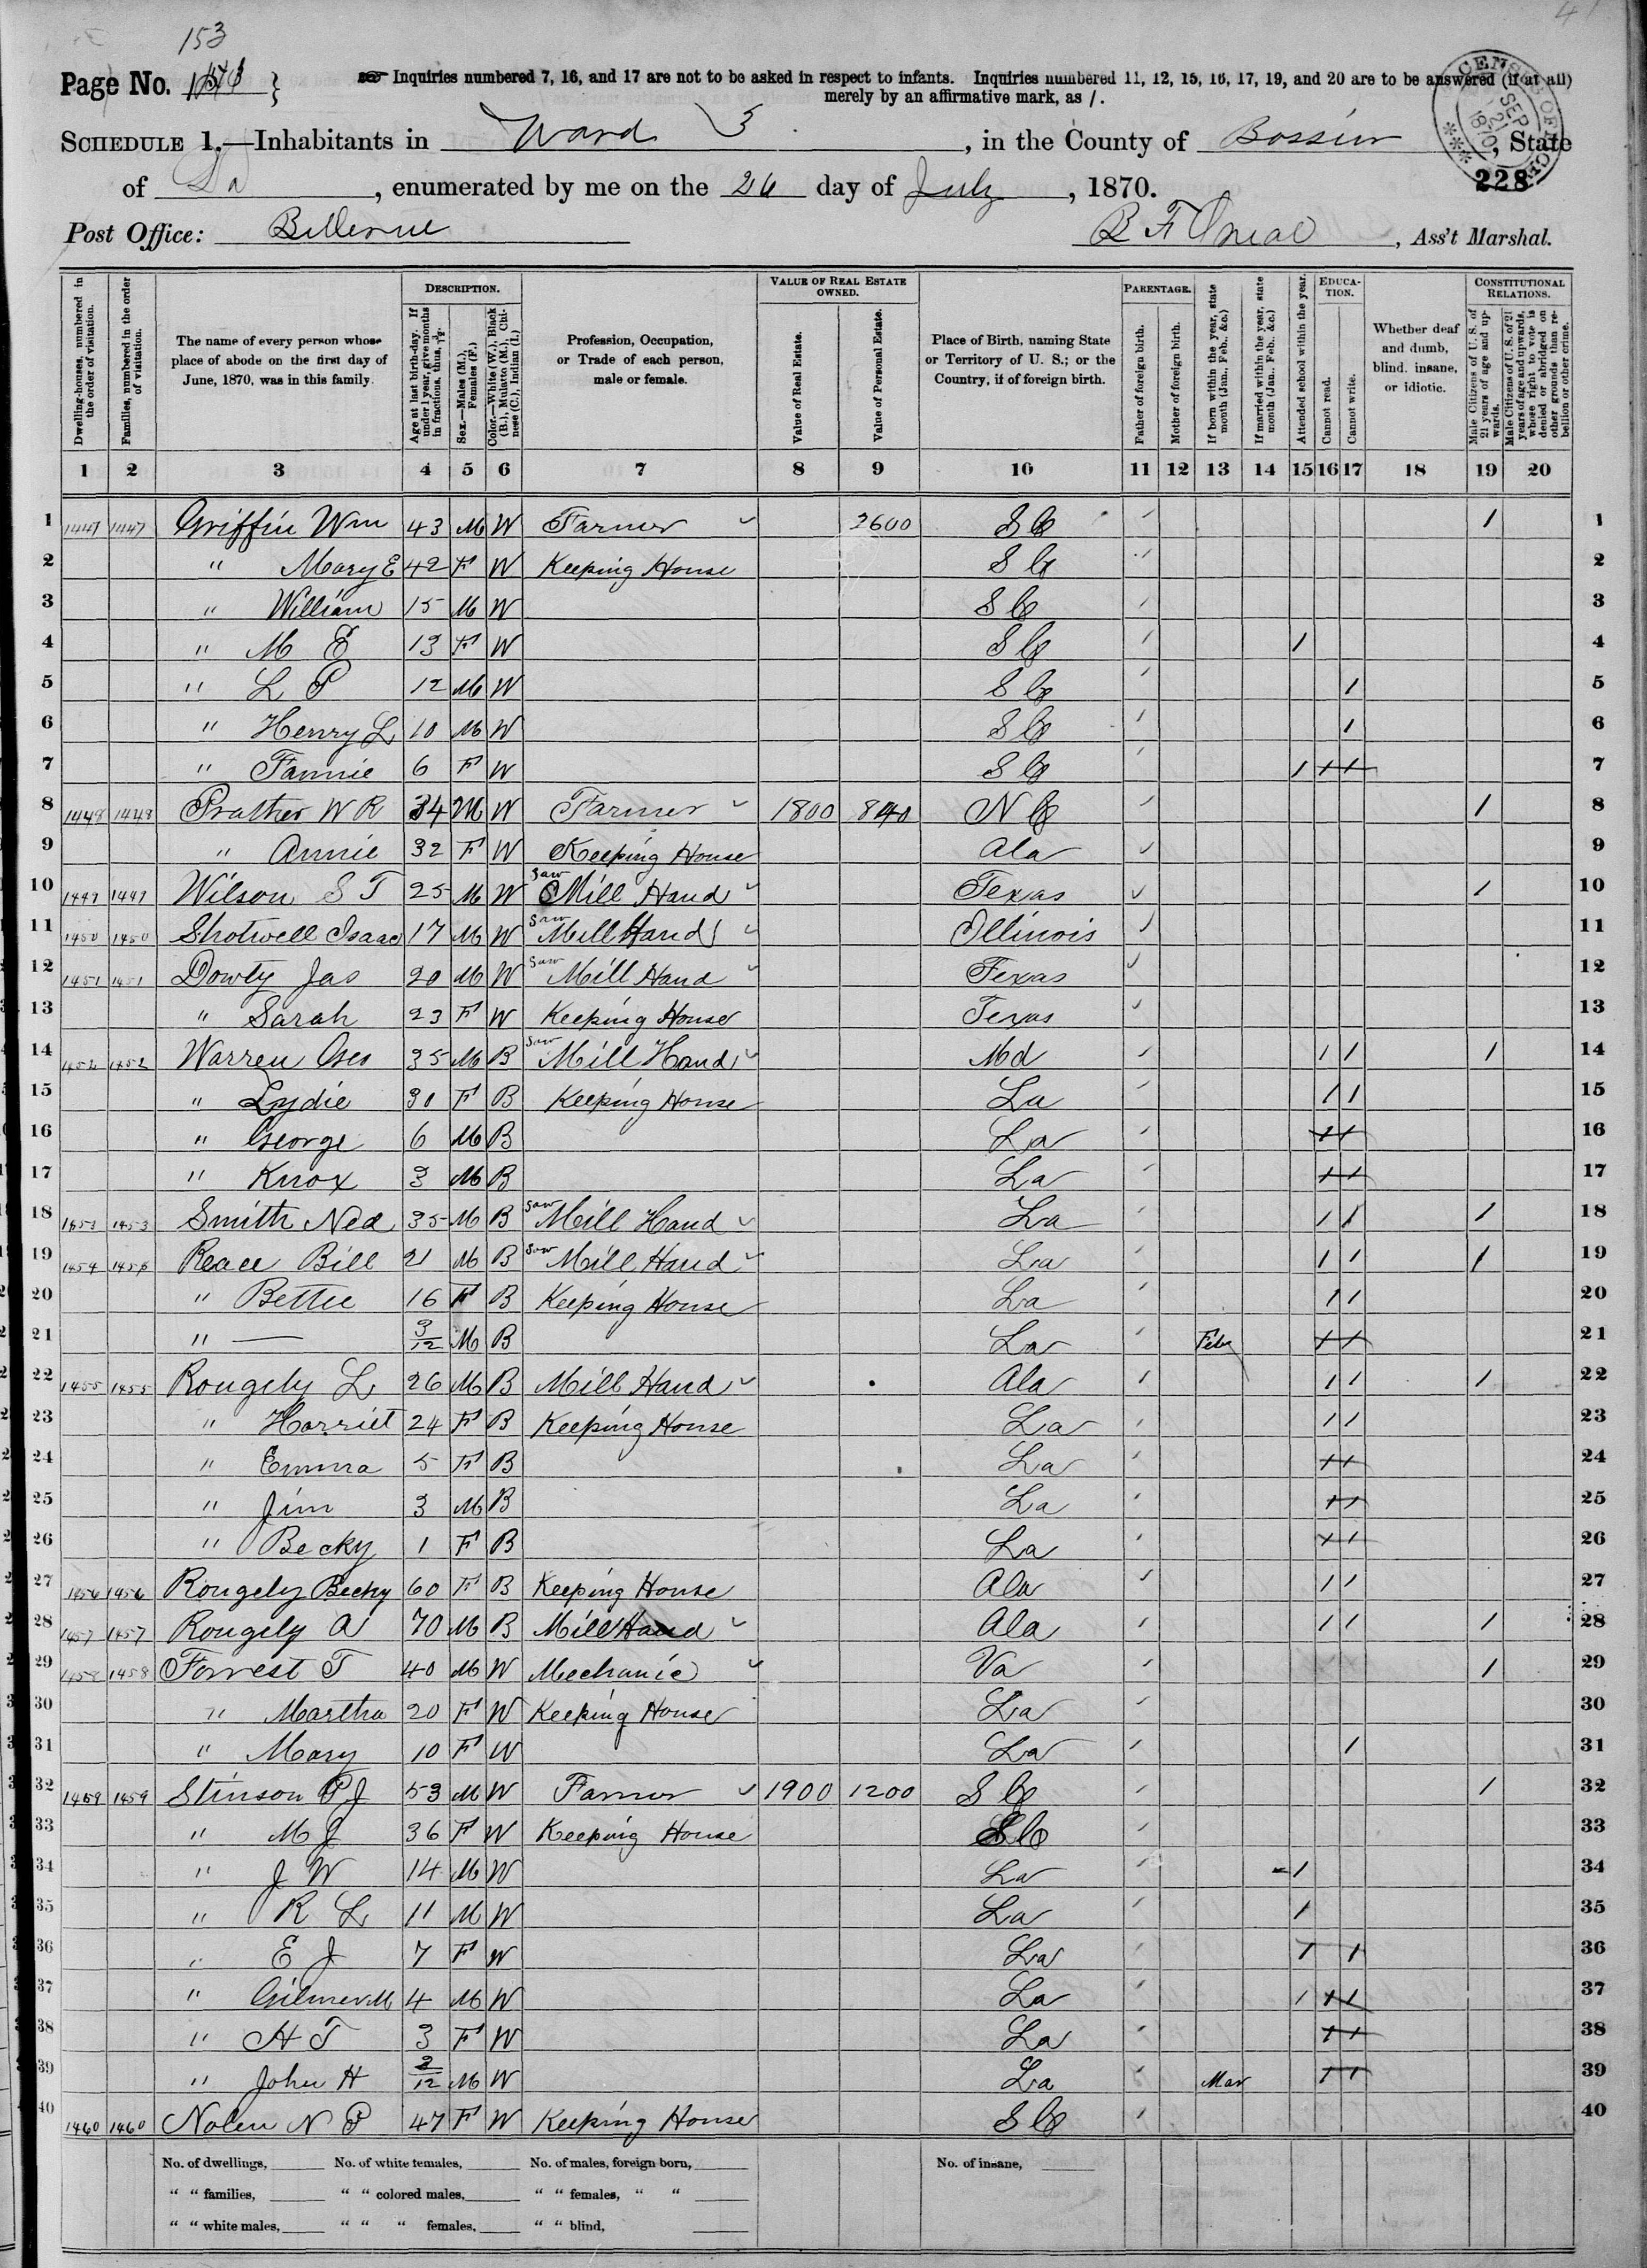 153
Page No.
Inquiries numbered 7, 16, and 17 are not to be asked in respect to infants. Inquiries numbered 11, 12, 15, 16, 17, 19, and 20 are to be answered (if at all)
merely by an affirmative mark, as /.
SCHEDULE 1.—Inhabitants in Ward 3, in the County of Bossier, State
of La, enumerated by me on the 26 day of July, 1870.
228
Post Office: Bellevue
B F Oneal, Ass't Marshal.
Dwelling-houses, numbered in the order of visitation.
Families, numbered in the order of visitation.
The name of every person whose place of abode on the first day of June, 1870, was in this family.
DESCRIPTION.
Age at last birth-day. If under 1 year, give months in fractions, thus, 3/12
Sex.—Males (M.), Females (F.)
Color.—White (W.), Black (B.), Mulatto (M.), Chinese (C.), Indian (I.)
Profession, Occupation, or Trade of each person, male or female.
VALUE OF REAL ESTATE OWNED.
Value of Real Estate.
Value of Personal Estate.
Place of Birth, naming State or Territory of U. S.; or the Country, if of foreign birth.
PARENTAGE.
Father of foreign birth.
Mother of foreign birth.
If born within the year, state month (Jan., Feb. &c.)
If married within the year, state month (Jan., Feb. &c.)
Attended school within the year.
EDUCATION.
Cannot read.
Cannot write.
Whether deaf and dumb, blind, insane, or idiotic.
CONSTITUTIONAL RELATIONS.
Male Citizens of U. S. of 21 years of age and upwards.
Male Citizens of U. S. of 21 years of age and upwards, whose right to vote is denied or abridged on other grounds than rebellion or other crime.
1 2 3 4 5 6 7 8 9 10 11 12 13 14 15 16 17 18 19 20
1 1447 1447 Griffin Wm 43 M W Farmer 2600 S C / 1 1
2 " Mary E 42 F W Keeping House S C / 2
3 " William 15 M W S C / 3
4 " M E 13 F W S C / 1 4
5 " L P 12 M W S C / 1 5
6 " Henry L 10 M W S C / 1 6
7 " Fannie 6 F W S C / 1 1 1 7
8 1448 1448 Prather W R 34 M W Farmer 1800 840 N C / 1 8
9 " Annie 32 F W Keeping House Ala / 9
10 1449 1449 Wilson S T 25 M W Saw Mill Hand Texas / 1 10
11 1450 1450 Shotwell Isaac 17 M W Saw Mill Hand Illinois / 11
12 1451 1451 Dowty Jas 20 M W Saw Mill Hand Texas / 12
13 " Sarah 23 F W Keeping House Texas / 13
14 1452 1452 Warren Geo 35 M B Saw Mill Hand Md / 1 1 1 14
15 " Lydie 30 F B Keeping House La / 1 1 15
16 " George 6 M B La / 1 1 16
17 " Knox 3 M B La / 1 1 17
18 1453 1453 Smith Ned 35 M B Saw Mill Hand La / 1 1 1 18
19 1454 1454 Reace Bill 21 M B Saw Mill Hand La / 1 1 1 19
20 " Bettie 16 F B Keeping House La / 1 1 20
21 " — 3/12 M B La / Feby 1 1 21
22 1455 1455 Rougely L 26 M B Mill Hand Ala / 1 1 1 22
23 " Harriet 24 F B Keeping House La / 1 1 23
24 " Emma 5 F B La / 1 1 24
25 " Jim 3 M B La / 1 1 25
26 " Becky 1 F B La / 1 1 26
27 1456 1456 Rougely Becky 60 F B Keeping House Ala / 1 1 27
28 1457 1457 Rougely A 70 M B Mill Hand Ala / 1 1 1 28
29 1458 1458 Forrest T 40 M W Mechanic Va / 1 29
30 " Martha 20 F W Keeping House La / 30
31 " Mary 10 F W La / 1 31
32 1459 1459 Stinson P J 53 M W Farmer 1900 1200 S C / 1 32
33 " M J 36 F W Keeping House S C / 33
34 " J W 14 M W La / 1 34
35 " R L 11 M W La / 1 35
36 " E J 7 F W La / 1 1 36
37 " Gilmer M 4 M W La / 1 1 1 37
38 " H T 3 F W La / 1 1 38
39 " John H 2/12 M W La / Mar 1 1 39
40 1460 1460 Nolen N P 47 F W Keeping House S C / 40
No. of dwellings, No. of white females, No. of males, foreign born, No. of insane,
" " families, " " colored males, " " females, " "
" " white males, " " " females, " " blind,